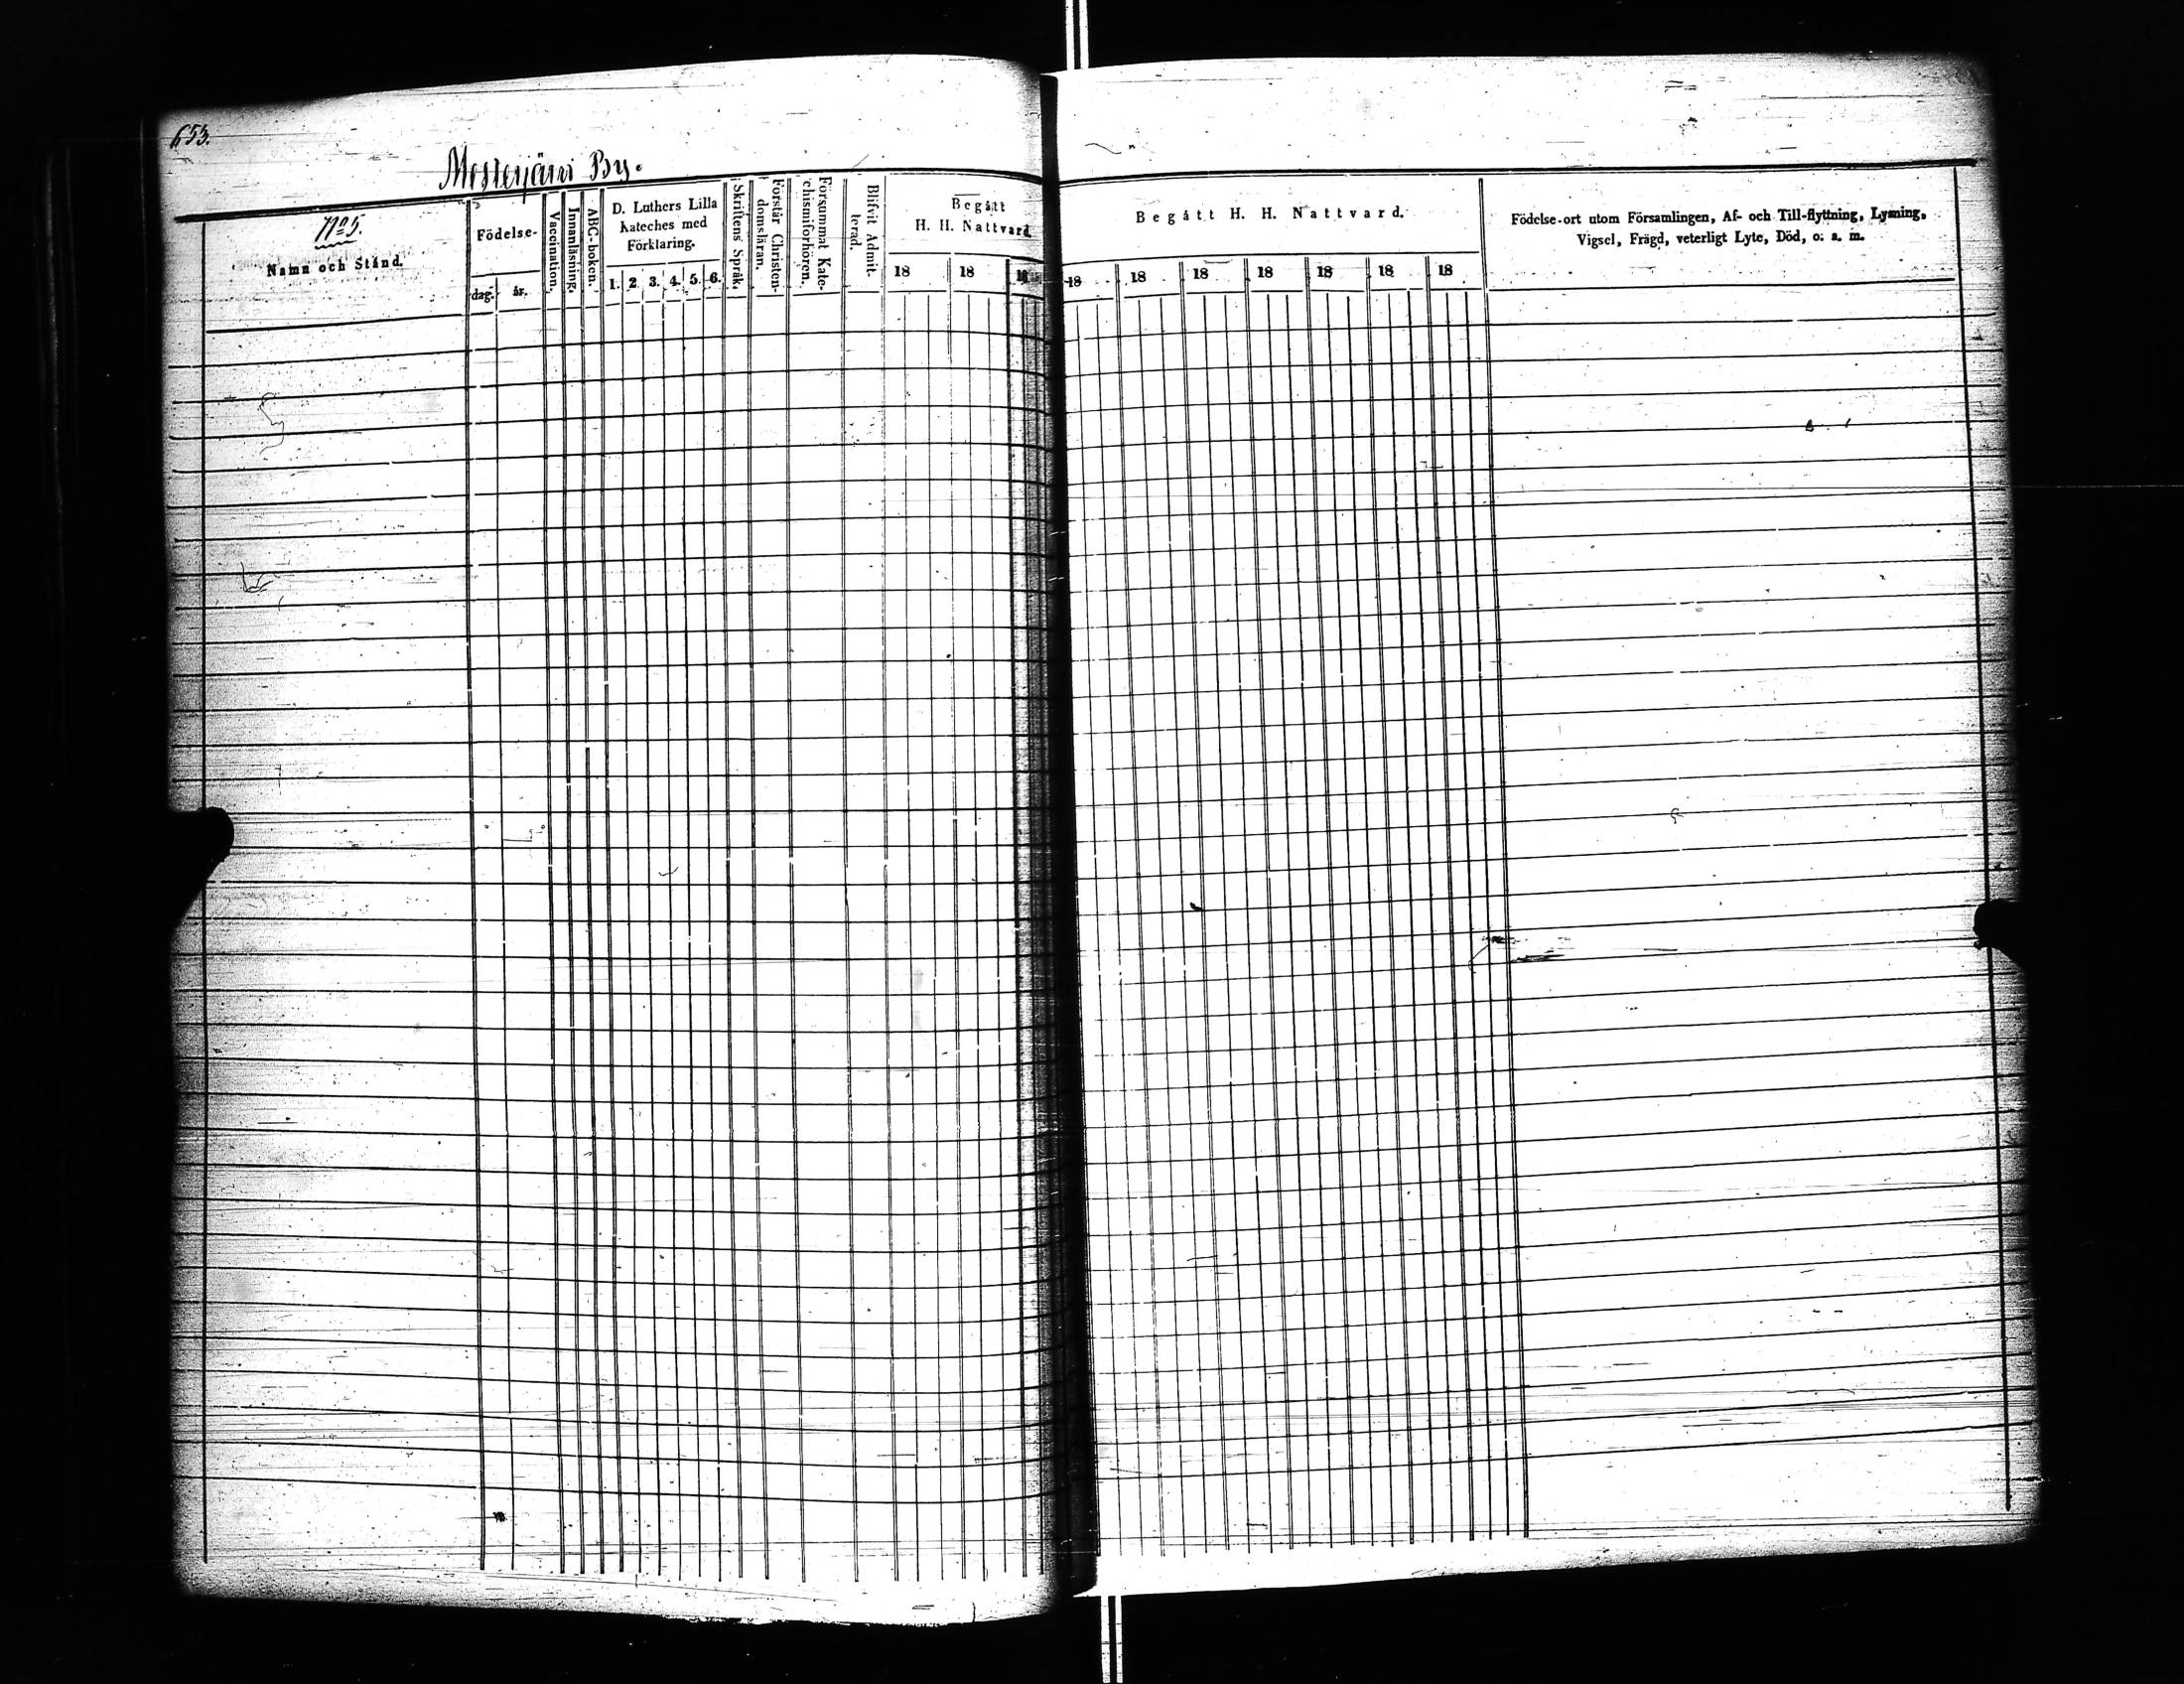 653.
Mosterjärvi By.
No 5.
Namn och Stånd.
Födelse-
dag.
år.
Vaccination.
Innanläsning.
ABC-boken.
D. Luthers Lilla
Kateches med
Förklaring.
1. 2. 3. 4. 5. 6.
Skriftens Språk.
Förstår Christen-
domsläran.
Försummat Kate-
chismiförhören.
Blifvit Admit-
terad.
Begått
H. H. Nattvard
18 18 18
Begått H. H. Nattvard.
18 18 18 18 18 18 18
Födelse-ort utom Församlingen, Af- och Till-flyttning, Lysning,
Vigsel, Frägd, veterligt Lyte, Död, o. s. m.